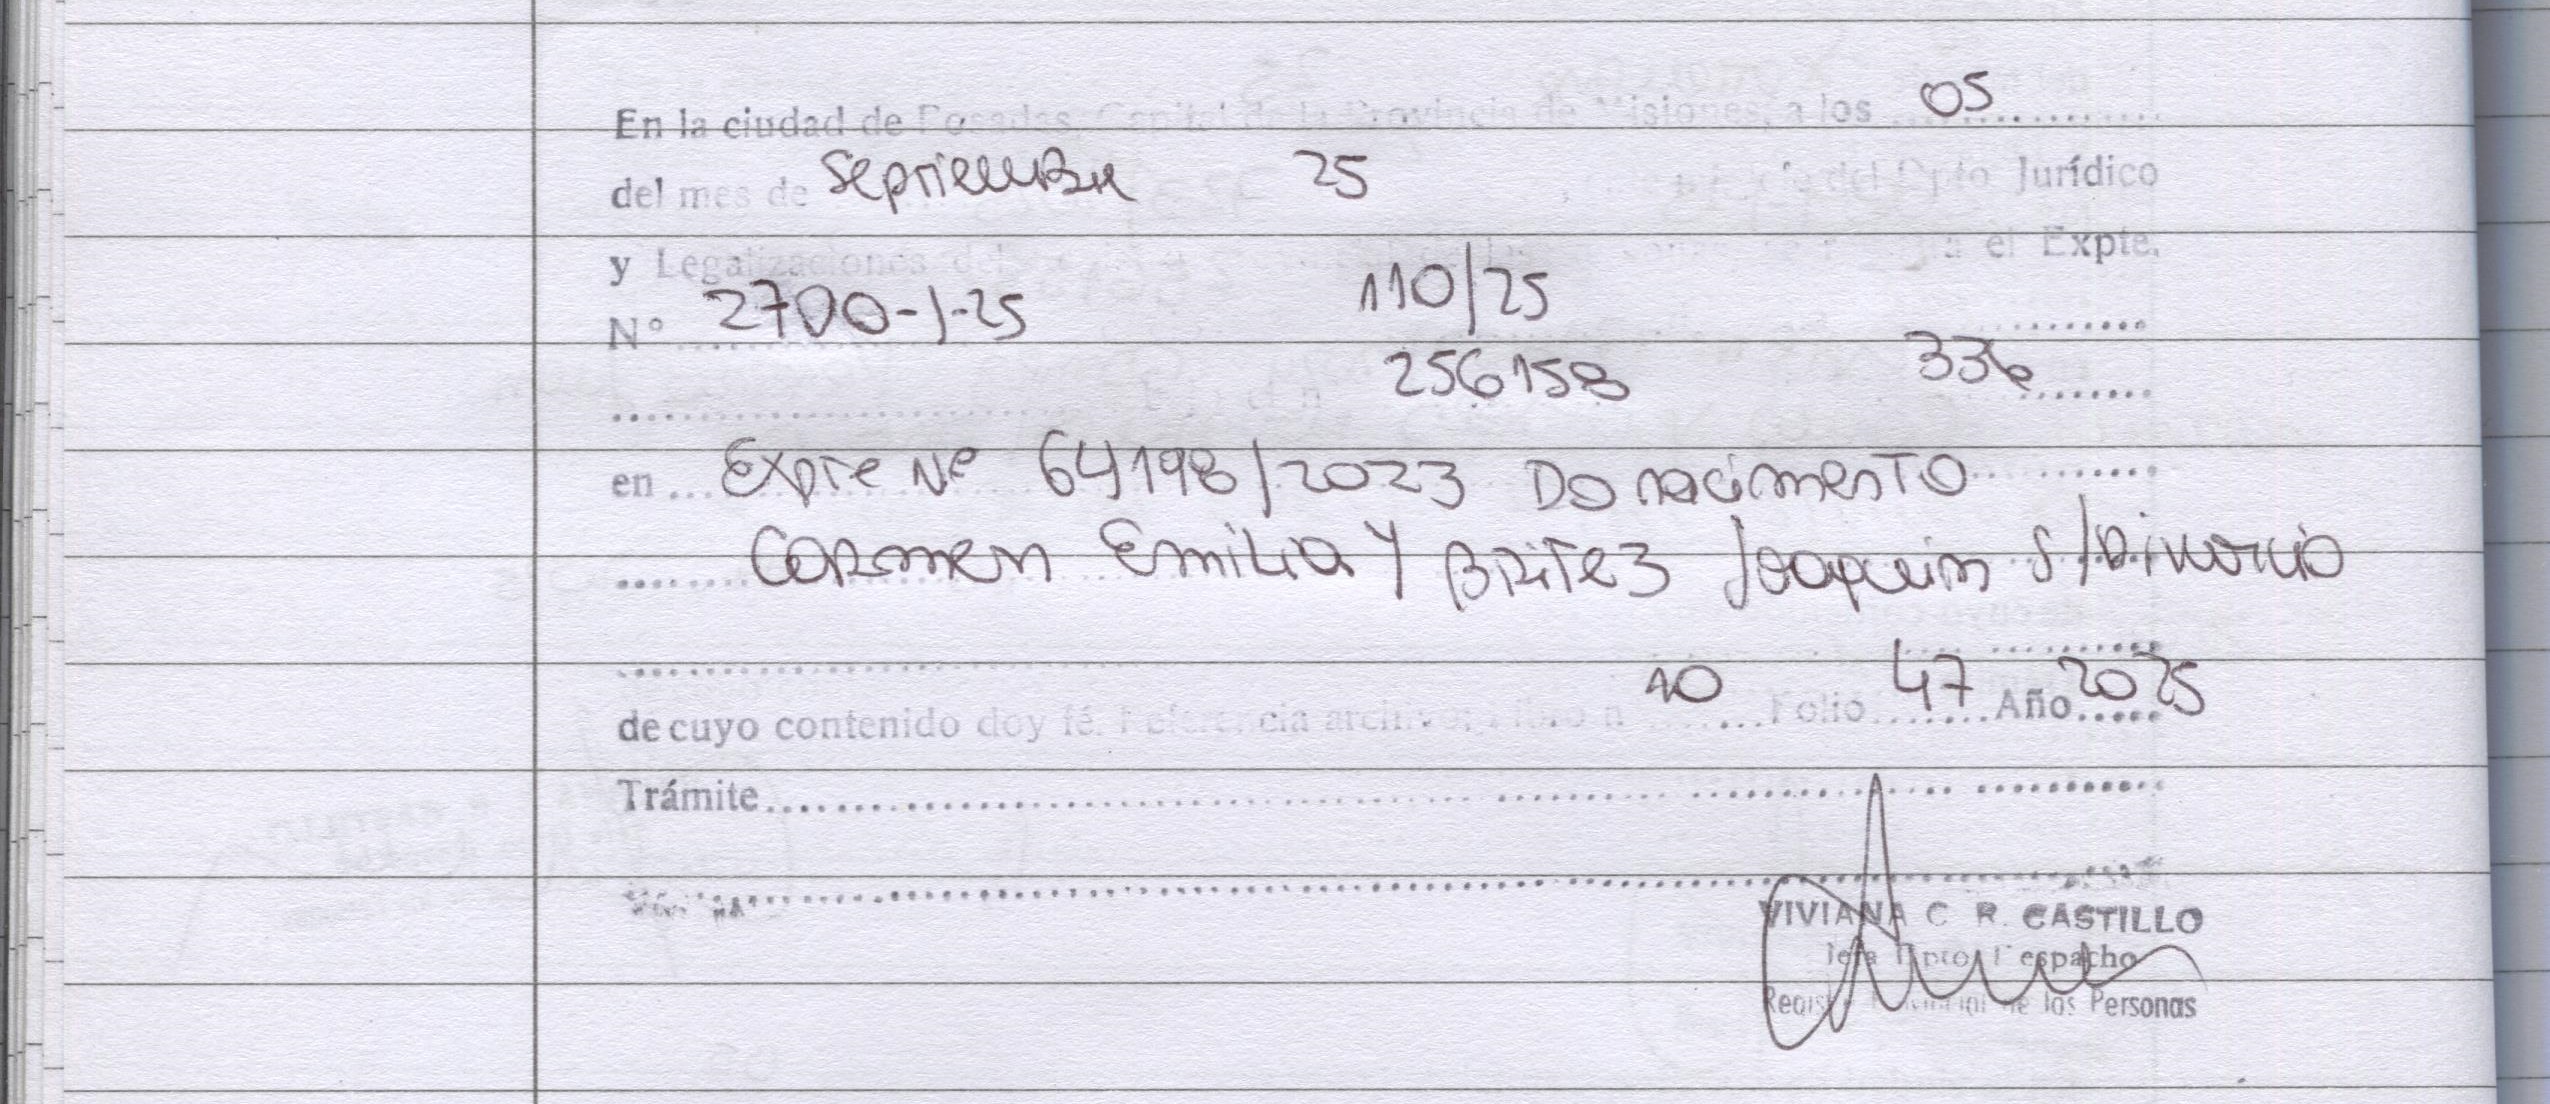 En la ciudad de Posadas, Capital de la Provincia de Misiones, a los 05
del mes de Septiembre 25 del Dpto Jurídico
y Legalizaciones del el Expte.
N° 2700-J-25 110/25
256158 336
en Expte Nº 64198/2023 Do nacimento
Carmen Emilia y Britez Joaquin S/Divorcio
de cuyo contenido doy fé. Referencia archivo: Libro n 10 Folio 47 Año 2025
Trámite
VIVIANA C. R. CASTILLO
Jefa Dpto Despacho
Registro Provincial de las Personas